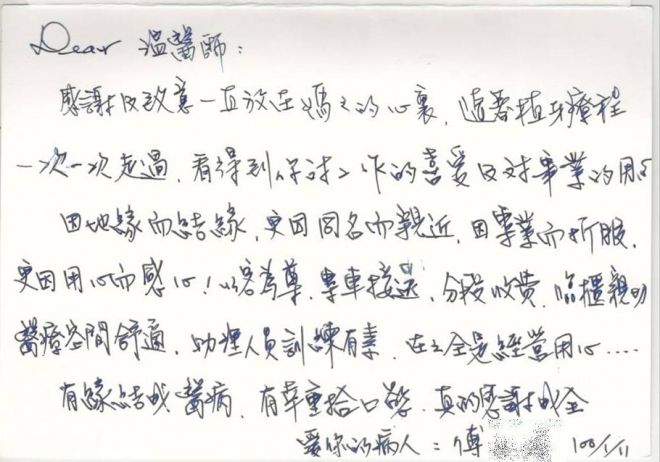 Dear 溫醫師：
感謝及敬意一直放在媽媽的心裏，隨著植牙療程
一次一次走過，看得到你對工作的喜愛及對事業的用心
因地緣而結緣，更因同名而親近，因專業而折服，
更因用心而感心！以客為尊，專車接送，分段收費，臨櫃親切
醫療空間舒適，助理人員訓練有素，在在全是經營用心....
有緣結成醫病，有幸重拾口慾，真的感謝成全
愛你的病人：傅
100/1/11